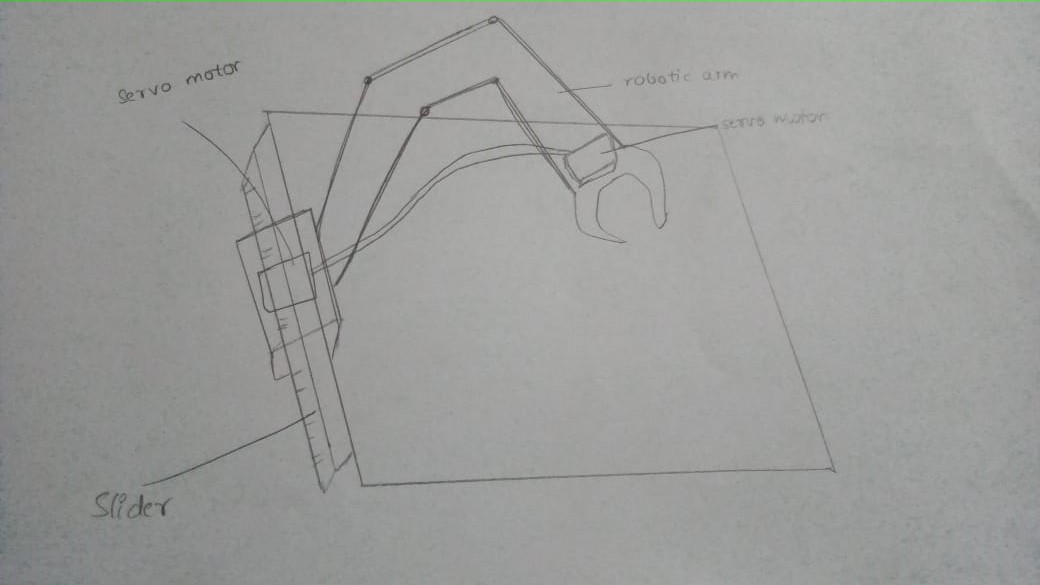 servo motor
robotic arm
servo motor
Slider